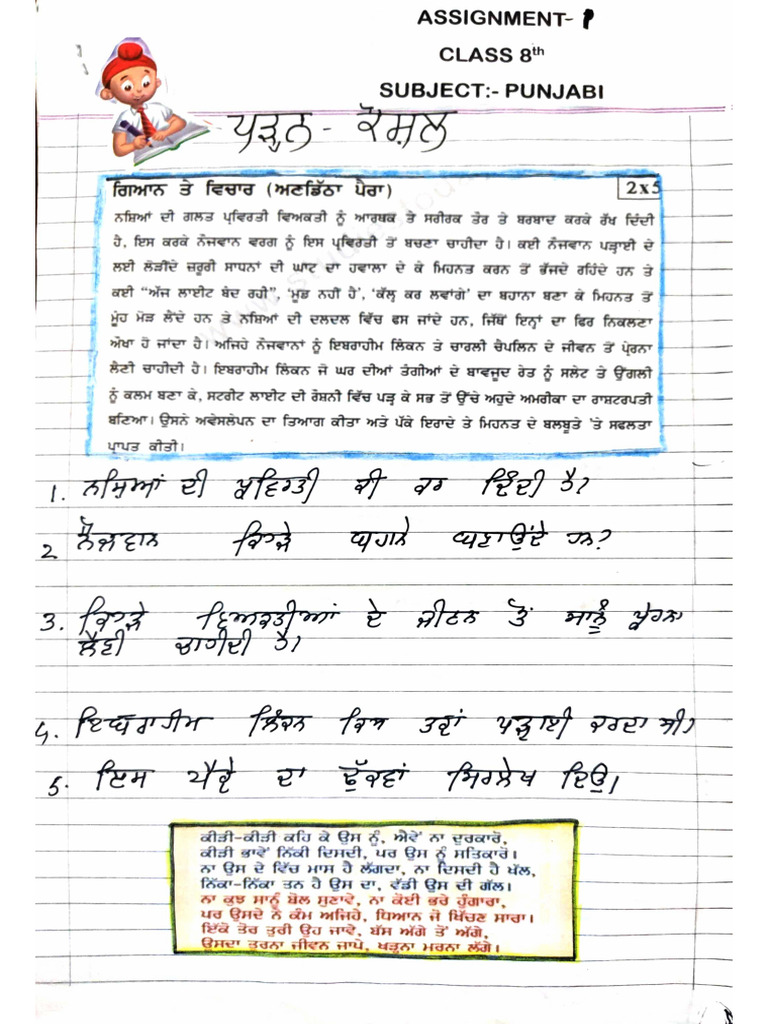 ASSIGNMENT- 1
CLASS 8th
SUBJECT:- PUNJABI
ਪੜ੍ਹਨ - ਕੌਸ਼ਲ
ਗਿਆਨ ਤੇ ਵਿਚਾਰ (ਅਣਡਿੱਠਾ ਪੈਰਾ) 2x5
ਨਸ਼ਿਆਂ ਦੀ ਗਲਤ ਪ੍ਰਵਿਰਤੀ ਵਿਅਕਤੀ ਨੂੰ ਆਰਥਕ ਤੇ ਸਰੀਰਕ ਤੌਰ ਤੇ ਬਰਬਾਦ ਕਰਕੇ ਰੱਖ ਦਿੰਦੀ
ਹੈ, ਇਸ ਕਰਕੇ ਨੌਜਵਾਨ ਵਰਗ ਨੂੰ ਇਸ ਪ੍ਰਵਿਰਤੀ ਤੋਂ ਬਚਣਾ ਚਾਹੀਦਾ ਹੈ। ਕਈ ਨੌਜਵਾਨ ਪੜ੍ਹਾਈ ਦੇ
ਲਈ ਲੋੜੀਂਦੇ ਜ਼ਰੂਰੀ ਸਾਧਨਾਂ ਦੀ ਘਾਟ ਦਾ ਹਵਾਲਾ ਦੇ ਕੇ ਮਿਹਨਤ ਕਰਨ ਤੋਂ ਭੱਜਦੇ ਰਹਿੰਦੇ ਹਨ ਤੇ
ਕਈ “ਅੱਜ ਲਾਈਟ ਬੰਦ ਰਹੀ”, ‘ਮੂਡ ਨਹੀਂ ਹੈ’, ‘ਕੱਲ੍ਹ ਕਰ ਲਵਾਂਗੇ’ ਦਾ ਬਹਾਨਾ ਬਣਾ ਕੇ ਮਿਹਨਤ ਤੋਂ
ਮੂੰਹ ਮੋੜ ਲੈਂਦੇ ਹਨ ਤੇ ਨਸ਼ਿਆਂ ਦੀ ਦਲਦਲ ਵਿੱਚ ਫਸ ਜਾਂਦੇ ਹਨ, ਜਿੱਥੋਂ ਇਨ੍ਹਾਂ ਦਾ ਫਿਰ ਨਿਕਲਣਾ
ਔਖਾ ਹੋ ਜਾਂਦਾ ਹੈ। ਅਜਿਹੇ ਨੌਜਵਾਨਾਂ ਨੂੰ ਇਬਰਾਹੀਮ ਲਿੰਕਨ ਤੇ ਚਾਰਲੀ ਚੈਪਲਿਨ ਦੇ ਜੀਵਨ ਤੋਂ ਪ੍ਰੇਰਨਾ
ਲੈਣੀ ਚਾਹੀਦੀ ਹੈ। ਇਬਰਾਹੀਮ ਲਿੰਕਨ ਜੋ ਘਰ ਦੀਆਂ ਤੰਗੀਆਂ ਦੇ ਬਾਵਜੂਦ ਰੇਤ ਨੂੰ ਸਲੇਟ ਤੇ ਉਂਗਲੀ
ਨੂੰ ਕਲਮ ਬਣਾ ਕੇ, ਸਟਰੀਟ ਲਾਈਟ ਦੀ ਰੋਸ਼ਨੀ ਵਿੱਚ ਪੜ੍ਹ ਕੇ ਸਭ ਤੋਂ ਉੱਚੇ ਅਹੁਦੇ ਅਮਰੀਕਾ ਦਾ ਰਾਸ਼ਟਰਪਤੀ
ਬਣਿਆ। ਉਸਨੇ ਅਵੇਸਲੇਪਨ ਦਾ ਤਿਆਗ ਕੀਤਾ ਅਤੇ ਪੱਕੇ ਇਰਾਦੇ ਤੇ ਮਿਹਨਤ ਦੇ ਬਲਬੂਤੇ 'ਤੇ ਸਫਲਤਾ
ਪ੍ਰਾਪਤ ਕੀਤੀ।
1. ਨਸ਼ਿਆਂ ਦੀ ਪ੍ਰਵਿਰਤੀ ਕੀ ਕਰ ਦਿੰਦੀ ਹੈ?
2 ਨੌਜਵਾਨ ਕਿਹੜੇ ਬਹਾਨੇ ਬਣਾਉਂਦੇ ਹਨ?
3. ਕਿਹੜੇ ਵਿਅਕਤੀਆਂ ਦੇ ਜੀਵਨ ਤੋਂ ਸਾਨੂੰ ਪ੍ਰੇਰਨਾ
ਲੈਣੀ ਚਾਹੀਦੀ ਹੈ।
4. ਇਬਰਾਹੀਮ ਲਿੰਕਨ ਕਿਸ ਤਰ੍ਹਾਂ ਪੜ੍ਹਾਈ ਕਰਦਾ ਸੀ।
5. ਇਸ ਪੈਰ੍ਹੇ ਦਾ ਢੁੱਕਵਾਂ ਸਿਰਲੇਖ ਦਿਉ।
ਕੀੜੀ-ਕੀੜੀ ਕਹਿ ਕੇ ਉਸ ਨੂੰ, ਐਵੇਂ ਨਾ ਦੁਰਕਾਰੋ,
ਕੀੜੀ ਭਾਵੇਂ ਨਿੱਕੀ ਦਿਸਦੀ, ਪਰ ਉਸ ਨੂੰ ਸਤਿਕਾਰੋ।
ਨਾ ਉਸ ਦੇ ਵਿੱਚ ਮਾਸ ਹੈ ਲੱਗਦਾ, ਨਾ ਦਿਸਦੀ ਹੈ ਖੱਲ,
ਨਿੱਕਾ-ਨਿੱਕਾ ਤਨ ਹੈ ਉਸ ਦਾ, ਵੱਡੀ ਉਸ ਦੀ ਗੱਲ।
ਨਾ ਕੁਝ ਸਾਨੂੰ ਬੋਲ ਸੁਣਾਵੇ, ਨਾ ਕੋਈ ਭਰੇ ਹੁੰਗਾਰਾ,
ਪਰ ਉਸਦੇ ਨੇ ਕੰਮ ਅਜਿਹੇ, ਧਿਆਨ ਜੋ ਖਿੱਚਣ ਸਾਰਾ।
ਇੱਕੋ ਤੋਰ ਤੁਰੀ ਉਹ ਜਾਵੇ, ਬੱਸ ਅੱਗੇ ਤੋਂ ਅੱਗੇ,
ਉਸਦਾ ਤੁਰਨਾ ਜੀਵਨ ਜਾਪੇ, ਖੜ੍ਹਨਾ ਮਰਨਾ ਲੱਗੇ।